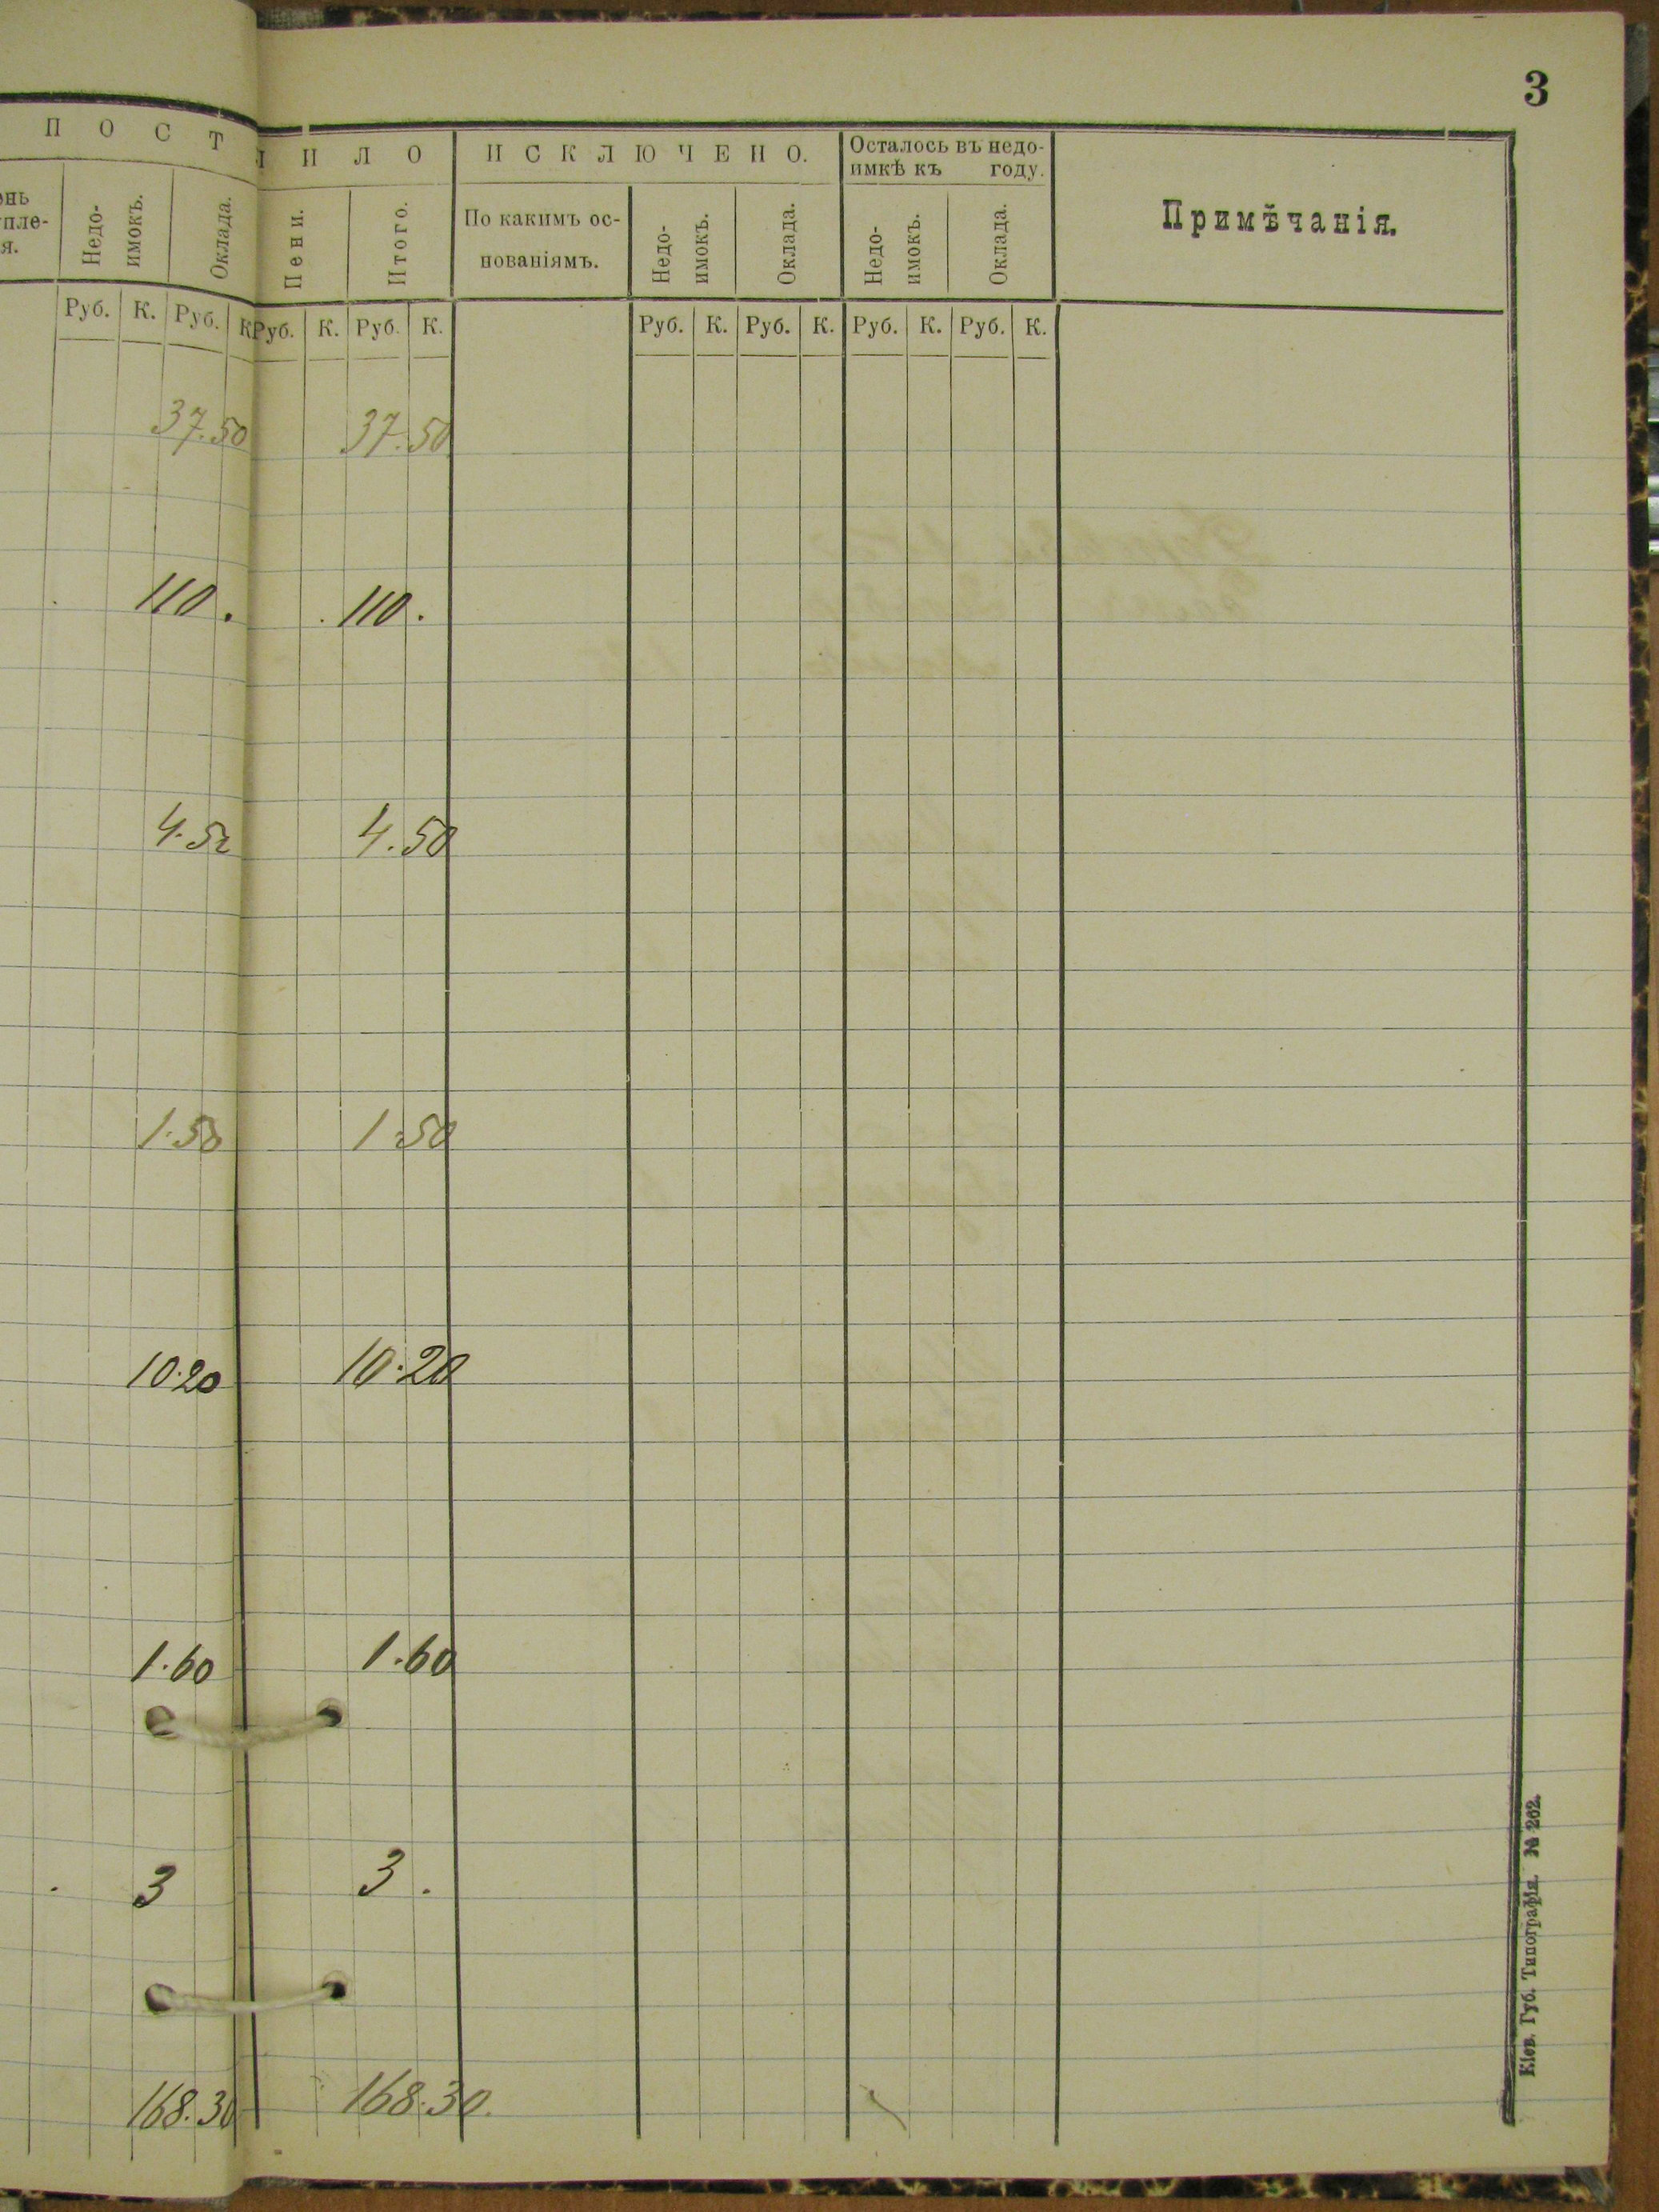 3
ПОСТ
ИЛО
ИСКЛЮЧЕНО.
Осталось въ недо-
имкѣ къ году.
Примѣчанія.
Недо-
имокъ.
Оклада.
Пени.
Итого.
По какимъ ос-
нованіямъ.
Недо-
имокъ.
Оклада.
Недо-
имокъ.
Оклада.
Руб. К. Руб. К Руб. К. Руб. К. Руб. К. Руб. К. Руб. К. Руб. К.
37.50 37.50
110. 110.
4.50 4.50
1.50 1.50
10.20 10.20
1.60 1.60
3 3.
168.30 168.30.
Кіев. Губ. Типографія. № 262.